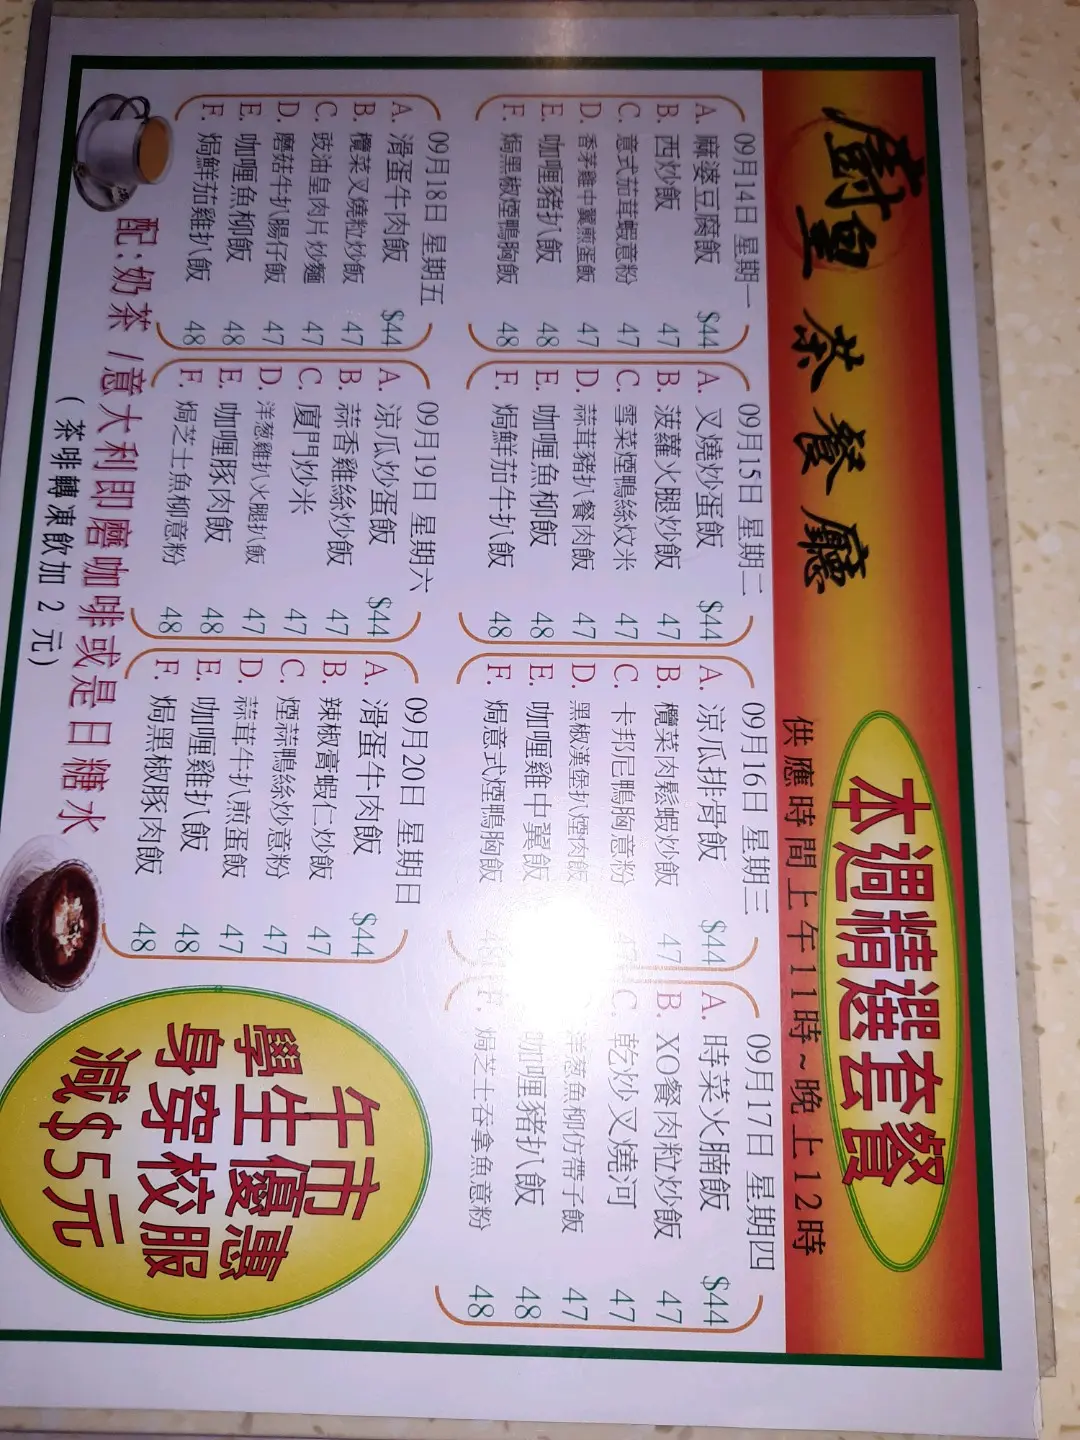 廚皇 茶餐廳
本週精選套餐
供應時間上午11時~晚上12時
09月14日 星期一
A. 麻婆豆腐飯 $44
B. 西炒飯 47
C. 意式茄茸蝦意粉 47
D. 香茅雞中翼煎蛋飯 47
E. 咖喱豬扒飯 48
F. 焗黑椒煙鴨胸飯 48
09月15日 星期二
A. 叉燒炒蛋飯 $44
B. 菠蘿火腿炒飯 47
C. 雪菜煙鴨絲炆米 47
D. 蒜茸豬扒餐肉飯 47
E. 咖喱魚柳飯 48
F. 焗鮮茄牛扒飯 48
09月16日 星期三
A. 涼瓜排骨飯 $44
B. 欖菜肉鬆蝦炒飯 47
C. 卡邦尼鴨胸意粉 47
D. 黑椒漢堡扒煙肉飯
E. 咖喱雞中翼飯
F. 焗意式煙鴨胸飯 48
09月17日 星期四
A. 時菜火腩飯 $44
B. XO餐肉粒炒飯 47
C. 乾炒叉燒河 47
洋葱魚柳仿帶子飯 47
咖喱豬扒飯 48
F. 焗芝士吞拿魚意粉 48
09月18日 星期五
A. 滑蛋牛肉飯 $44
B. 欖菜叉燒粒炒飯 47
C. 豉油皇肉片炒麵 47
D. 磨菇牛扒腸仔飯 47
E. 咖喱魚柳飯 48
F. 焗鮮茄雞扒飯 48
09月19日 星期六
A. 涼瓜炒蛋飯 $44
B. 蒜香雞絲炒飯 47
C. 廈門炒米 47
D. 洋葱雞扒火腿扒飯 47
E. 咖喱豚肉飯 48
F. 焗芝士魚柳意粉 48
09月20日 星期日
A. 滑蛋牛肉飯 $44
B. 辣椒膏蝦仁炒飯 47
C. 煙蒜鴨絲炒意粉 47
D. 蒜茸牛扒煎蛋飯 47
E. 咖喱雞扒飯 48
F. 焗黑椒豚肉飯 48
午市
學生優惠
身穿校服
減$5元
配:奶茶/意大利即磨咖啡或是日糖水
(茶啡轉凍飲加2元)